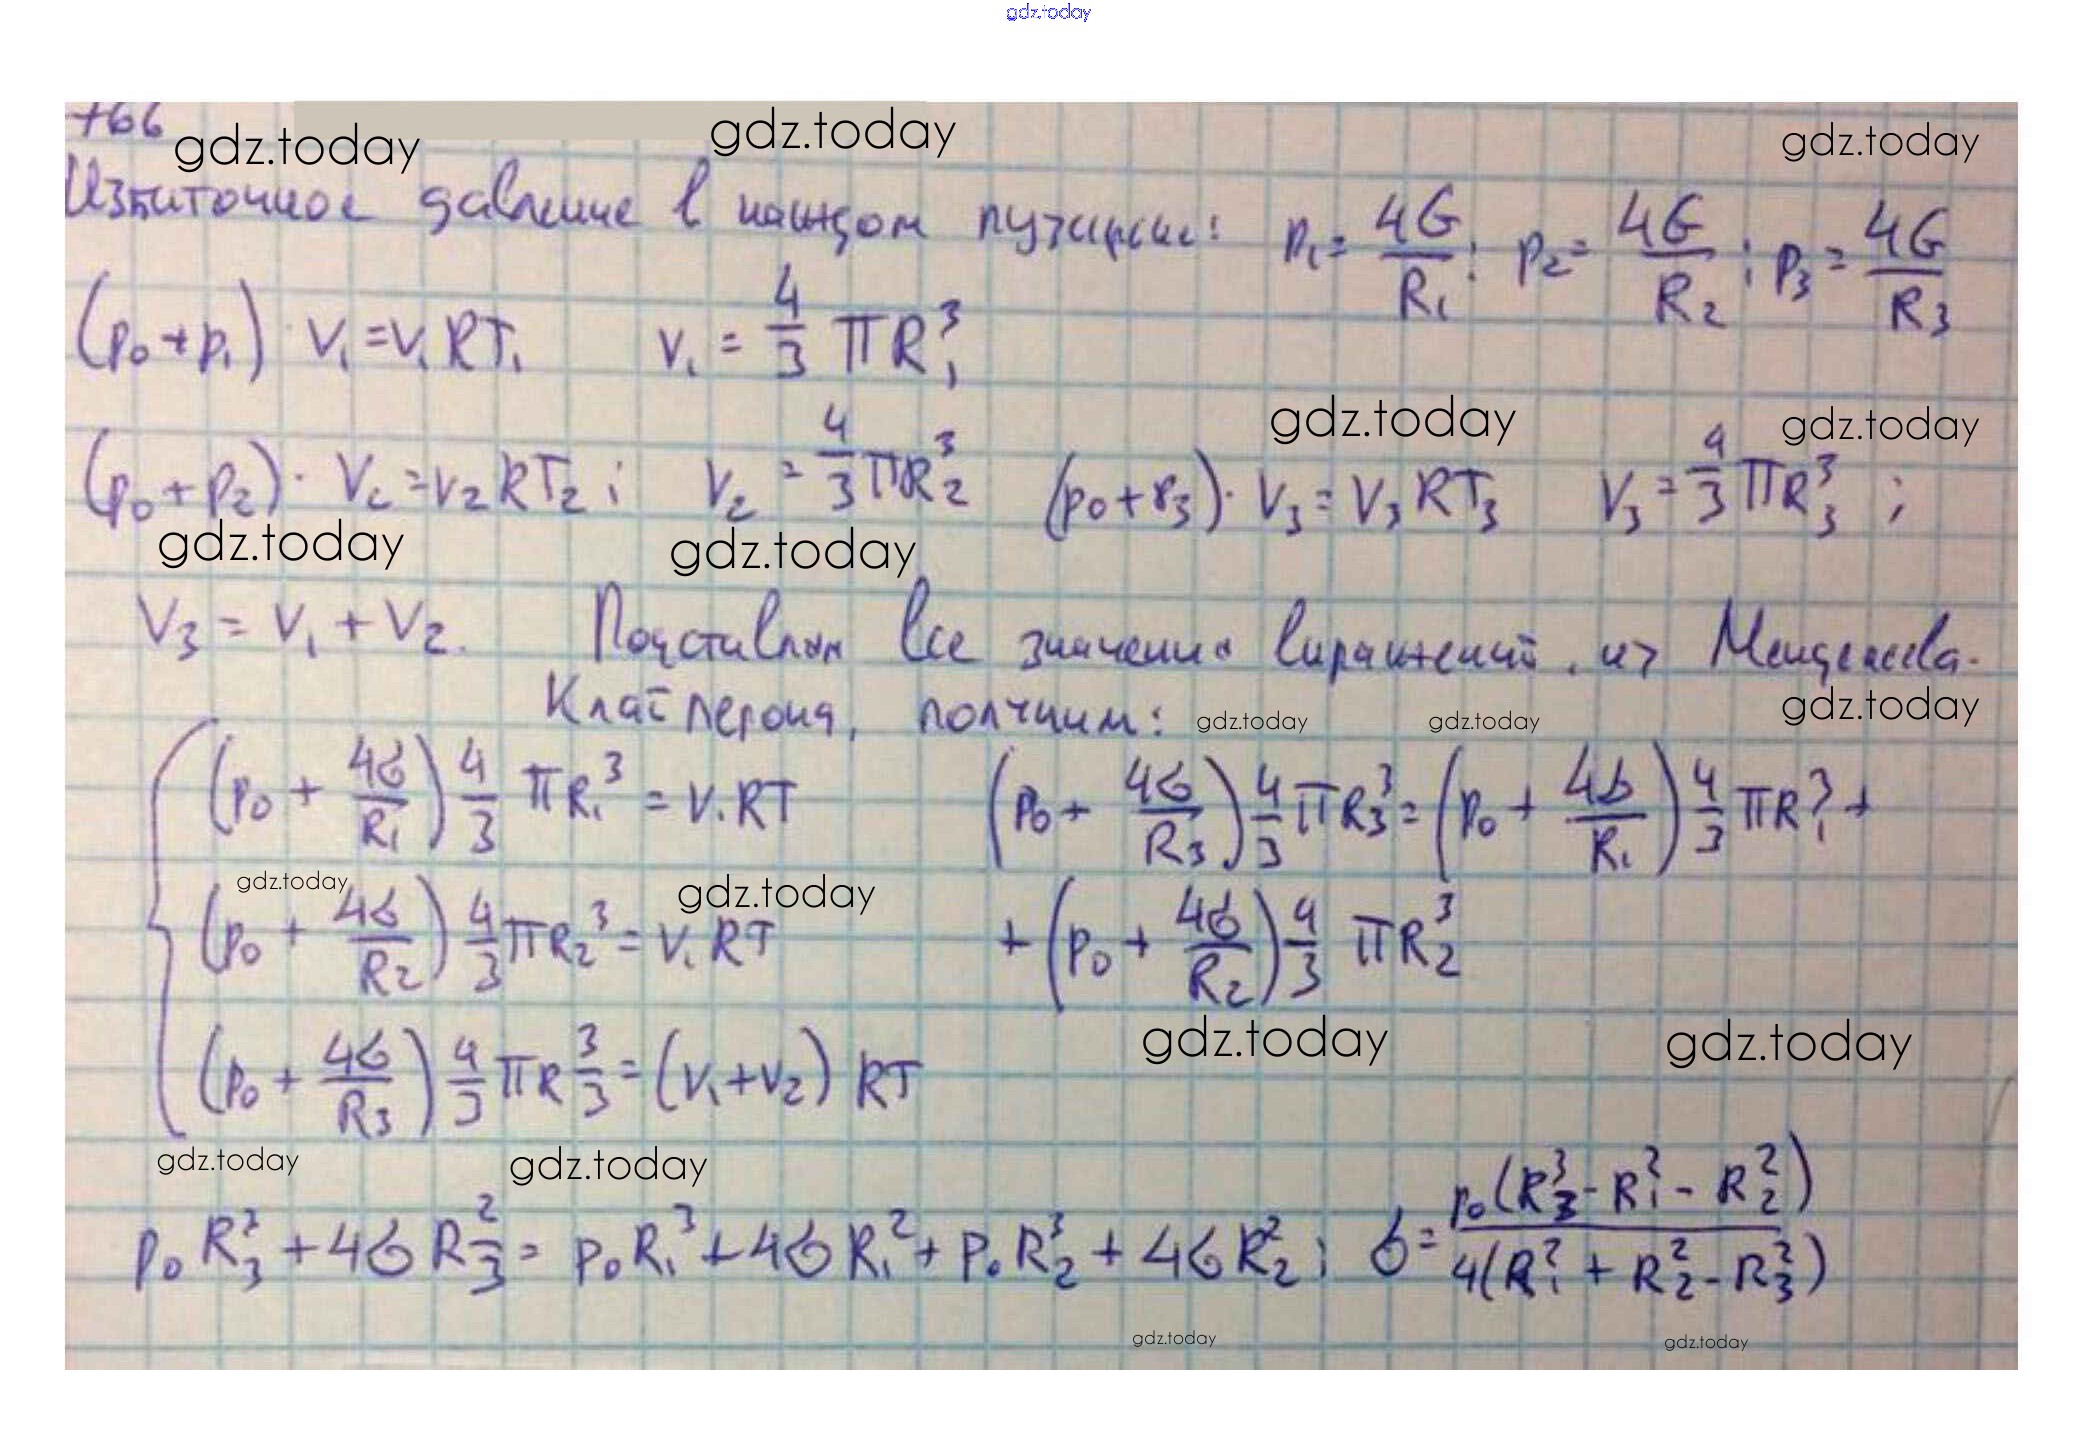 gdz.today
766
gdz.today gdz.today gdz.today
Избиточное давление в каждом пузирьке: p₁ = 4G/R₁; p₂ = 4G/R₂; p₃ = 4G/R₃
(p₀+p₁)·V₁=ν₁RT₁ V₁ = 4/3 πR₁³
gdz.today gdz.today
(p₀+p₂)·V₂=ν₂RT₂; V₂ = 4/3 πR₂³ (p₀+p₃)·V₃=ν₃RT₃ V₃ = 4/3 πR₃³;
gdz.today gdz.today
ν₃ = ν₁ + ν₂. Подставим все значения виражений из Менделеева-
Клайперона, получим: gdz.today gdz.today gdz.today
(p₀ + 4σ/R₁) 4/3 πR₁³ = ν₁RT (p₀ + 4σ/R₃) 4/3 πR₃³ = (p₀ + 4σ/R₁) 4/3 πR₁³ +
gdz.today gdz.today
(p₀ + 4σ/R₂) 4/3 πR₂³ = ν₁RT + (p₀ + 4σ/R₂) 4/3 πR₂³
gdz.today gdz.today
(p₀ + 4σ/R₃) 4/3 πR₃³ = (ν₁+ν₂) RT
gdz.today gdz.today
p₀R₃³ + 4σR₃² = p₀R₁³ + 4σR₁² + p₀R₂³ + 4σR₂²; σ = p₀(R₃³ - R₁³ - R₂²)/4(R₁² + R₂² - R₃²)
gdz.today gdz.today